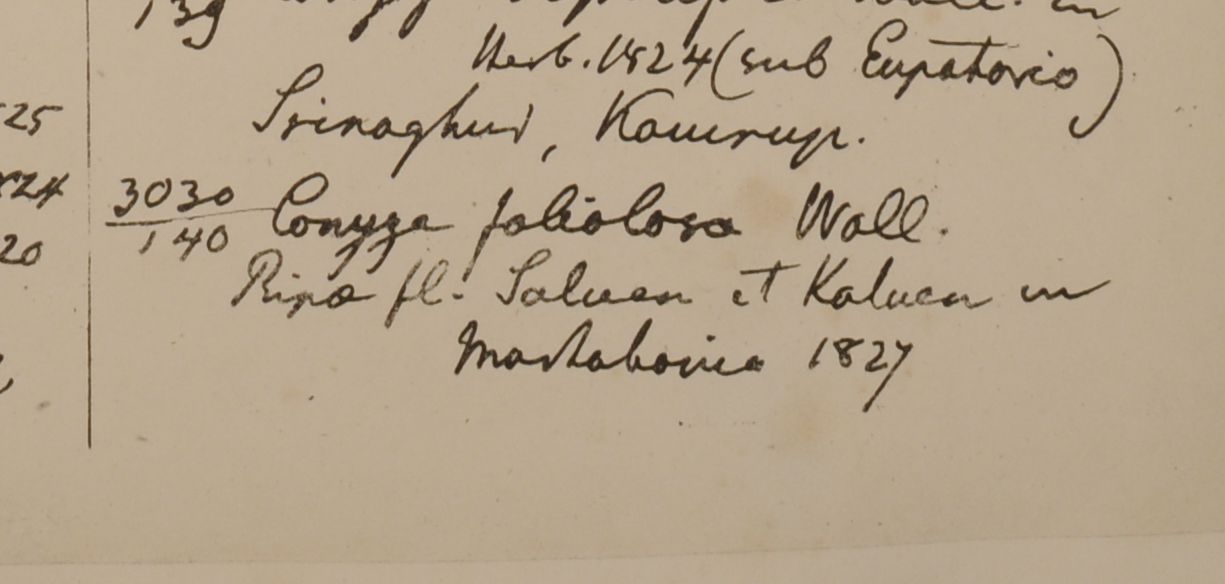 139
Wall. in
Herb. 1824 (sub Eupatorio)
25
Srinaghur, Kamrup.
824
3030 Conyza foliolosa Wall.
140
20
Ripa fl. Saluen et Kaluen in
Martabania 1827